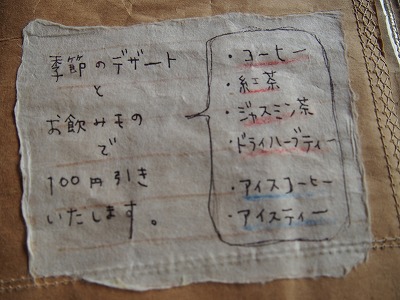 季節のデザート
と
お飲みモの
で
100円引き
いたします。
・コーヒー
・紅茶
・ジャスミン茶
・ドライハーブティー
・アイスコーヒー
・アイスティー